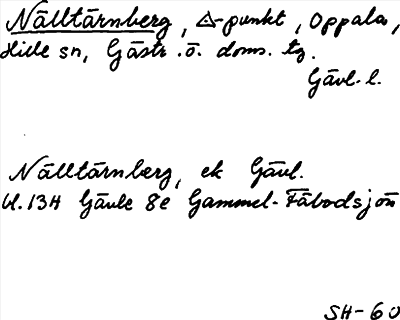 Nälltärnberg, △-punkt, Oppala,
Hille sn, Gästr. ö. doms. tg.
Gävl. l.
Nälltärnberg, ek Gävl.
bl. 13H Gävle 8e Gammel-Fäbodsjön
SH-60